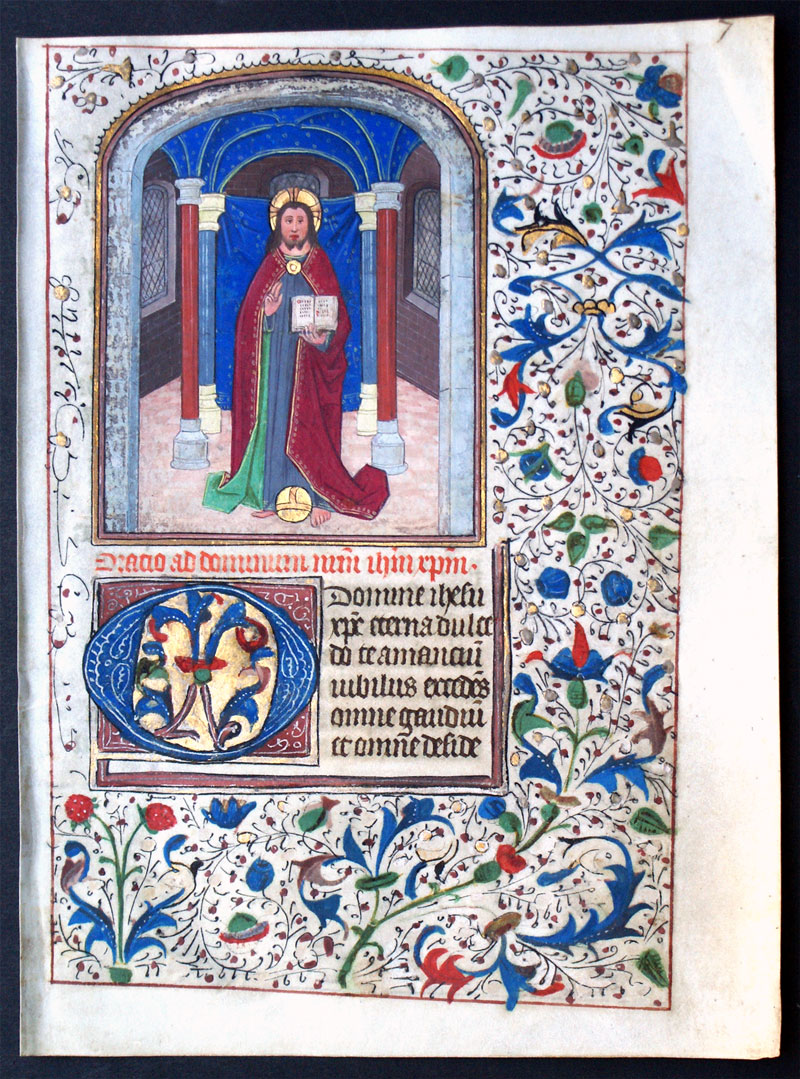 7
Oratio ad dominum nrm̄ ihm̄ xpm̄.
O Domine ihesu
xpe̅ eterna dulce
do te amanciū
iubilus excedēs
omne gaudiū
et omne̅ deside